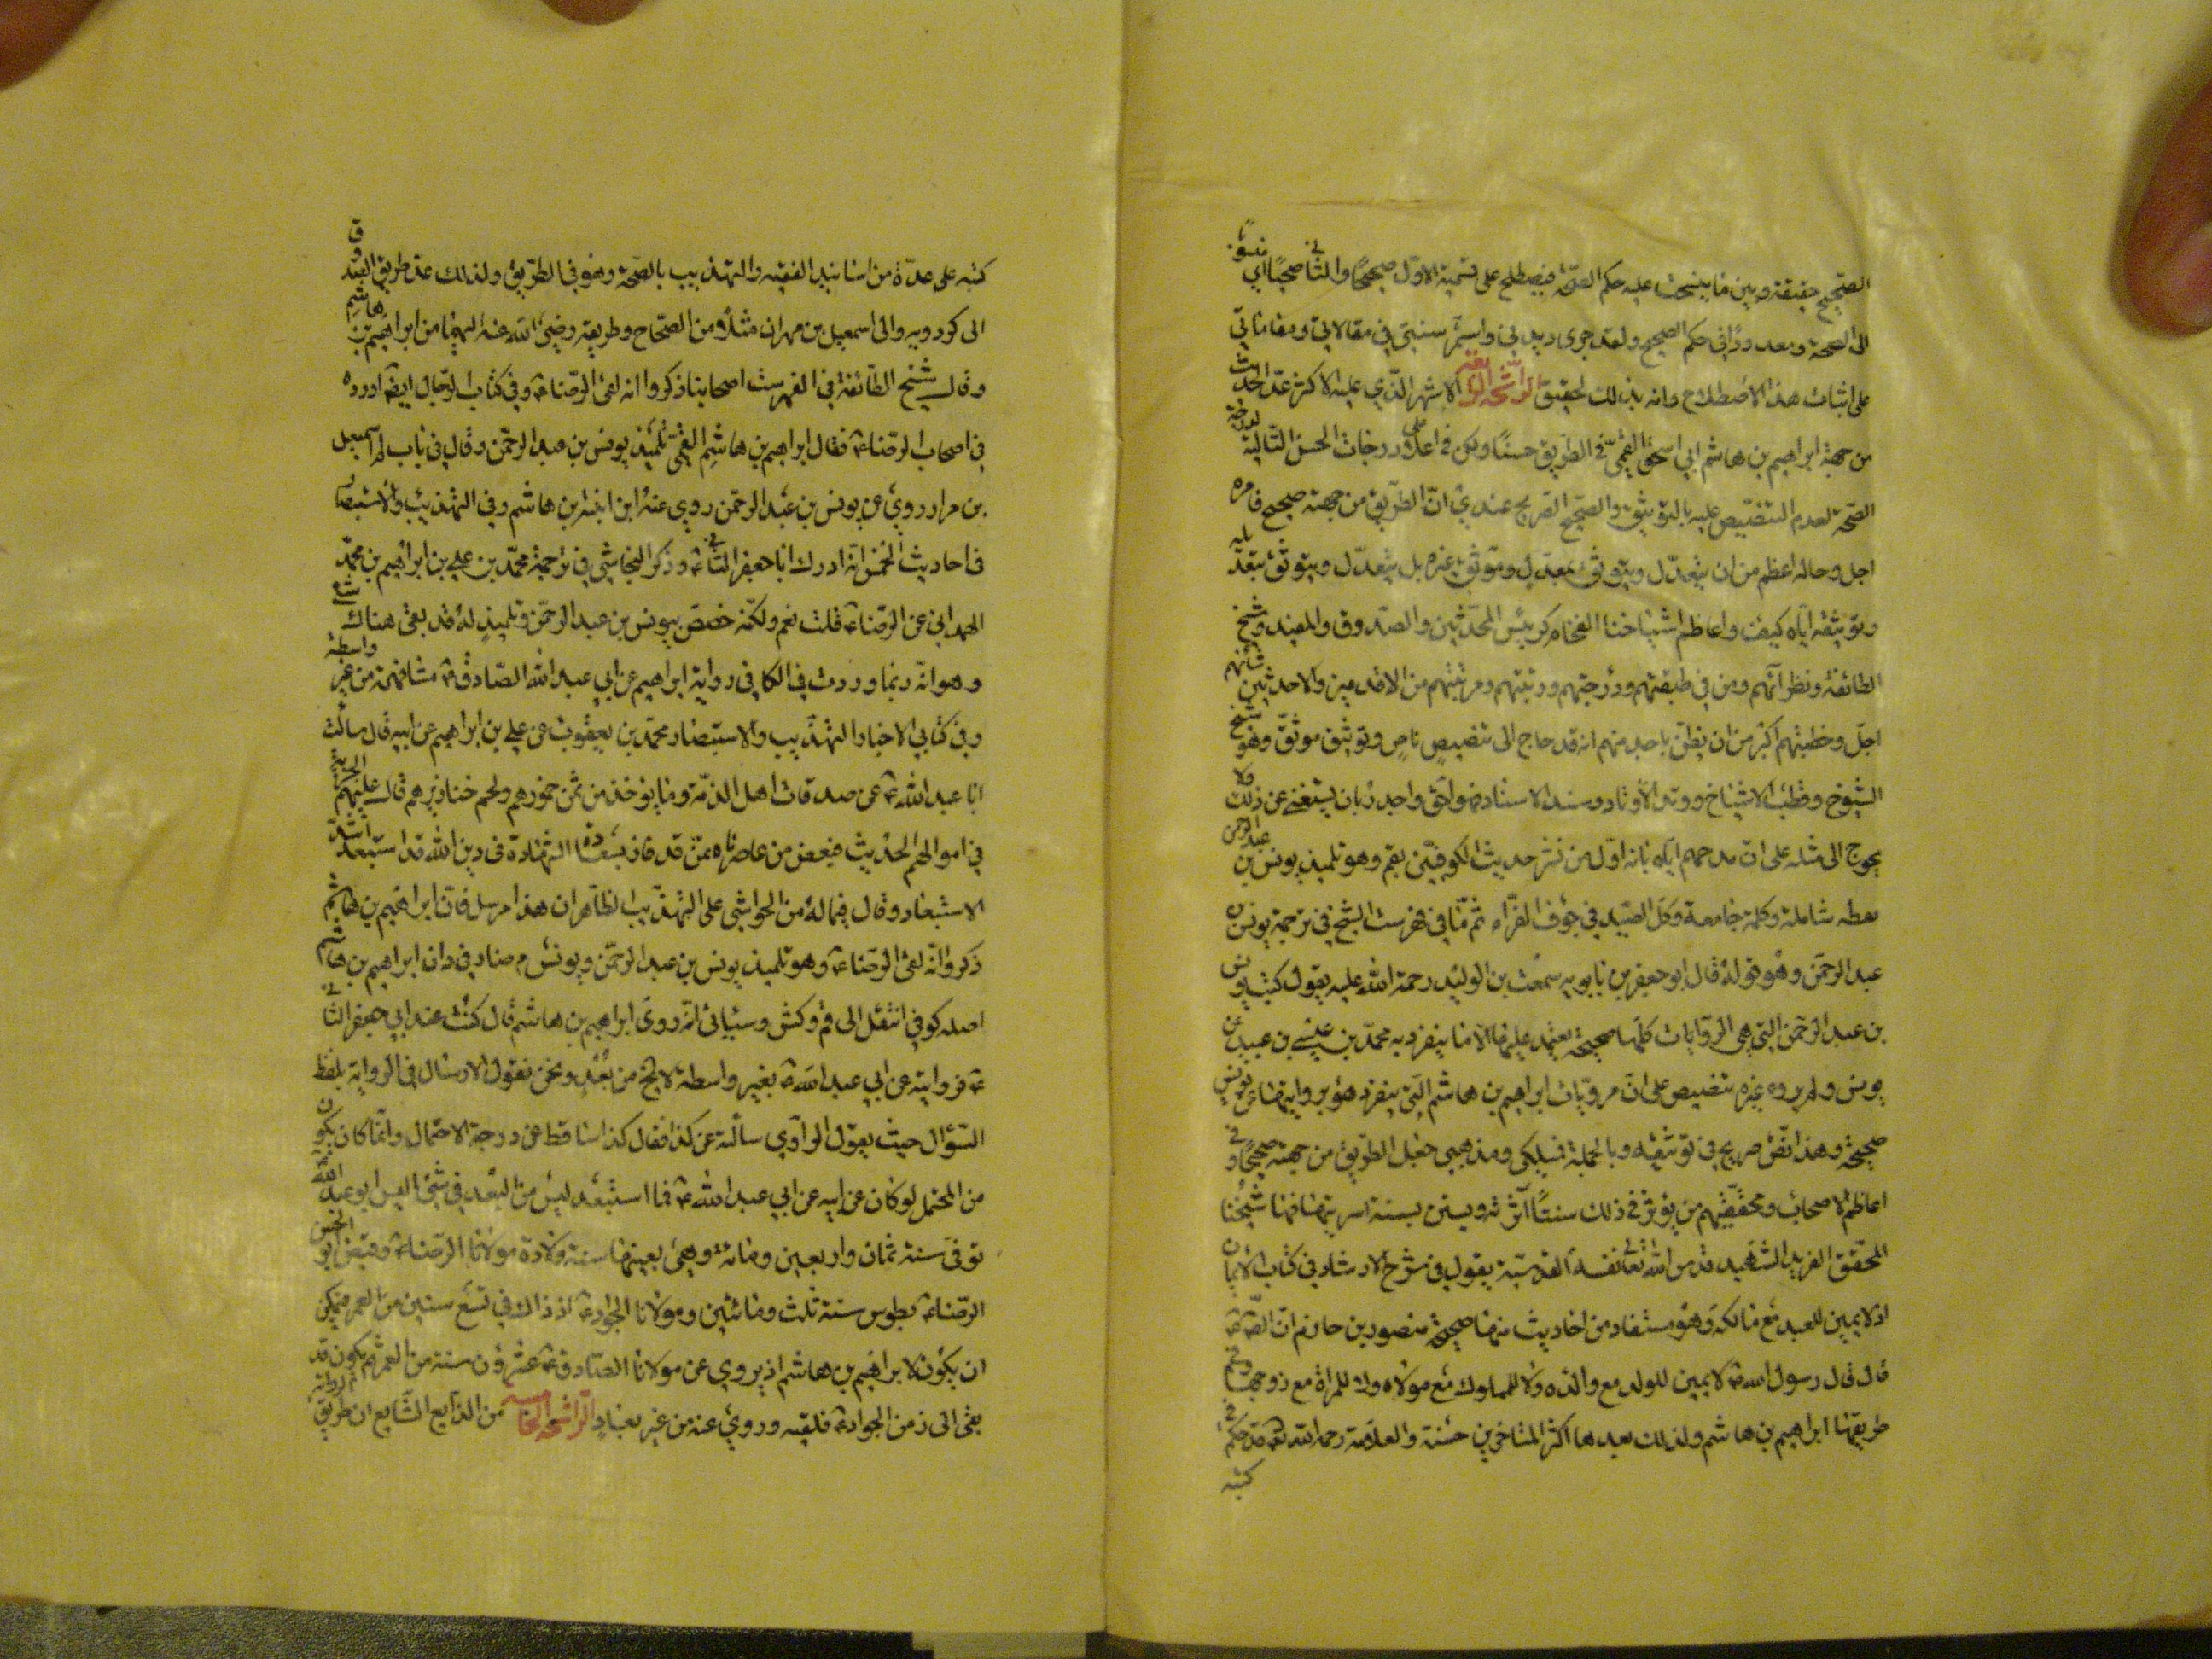 الصحيح حقيقة وبين ما ينسحب عليه حكم الصحة فيصطلح على تسمية الاول صحيحًا والثاني صحيًا اي منسوبًا
الى الصحة ومعدودًا في حكم الصحيح ولقد جرى ديدني واستمر سنتي في مقالاتي ومقاماتي
على اثبات هذا الاصطلاح وانه بذلك لحقيق الراشحة الرابعة الاشهر الذي عليه الاكثر عدّ الحديث
من جهة ابراهيم بن هاشم ابي اسحق القمي في الطريق حسنًا ولكن في اعلى درجات الحسن التالية لدرجة
الصحة لعدم التنصيص عليه بالتوثيق والصحيح الصريح عندي ان الطريق من جهته صحيح فامره
اجل وحاله اعظم من ان يتعدل ويتوثق بمعدل وموثق غيره بل يتعدل ويتوثق بتعديله
وتوثيقه اياه كيف واعاظم اشياخنا الفخام كرئيس المحدثين والصدوق والمفيد وشيخ
الطائفة ونظرائهم ومن في طبقتهم ودرجتهم ورتبتهم ومرتبتهم من الاقدمين والاحدثين شأنهم
اجل وخطبهم اكبر من ان يظن باحد منهم انه قد حاج الى تنصيص ناص وتوثيق موثق وهو شيخ
الشيوخ وقطب الاشياخ ووتد الاوتاد وسند الاسناد فهو احق واجدر بان يستغنى عن ذلك ولا
يحوج الى مثله على ان مدحهم اياه بانه اول من نشر حديث الكوفيين بقم وهو تلميذ يونس بن عبد الرحمن
لفظه شاملة وكلمة جامعة وكل الصيد في جوف الفراء ثم ما في فهرست الشيخ في ترجمة يونس بن
عبد الرحمن وهو قوله قال ابو جعفر بن بابويه سمعت بن الوليد رحمة الله عليه يقول كتب يونس
بن عبد الرحمن التي هي الروايات كلها صحيحة يعتمد عليها الا ما ينفرد به محمد بن عيسى بن عبيد عن
يونس ولم يروه غيره تنصيص على ان مرويات ابراهيم بن هاشم التي ينفرد هو بروايتها عن يونس
صحيحة وهذا نص صريح في توثيقه وبالجملة فمسلكي ومذهبي جعل الطريق من جهته صحيحًا وفي
اعاظم الاصحاب ومحققيهم من يؤثر في ذلك سنتنا آثر ثه ويستن بسنة اسر بتها فهذا شيخنا
المحقق الفريد الشهيد قدس الله تعالى نفسه القدسية يقول في شرح الارشاد في كتاب الايمان
اذ لا يمين للعبد مع مالكه وهو مستفاد من احاديث منها صحيحة منصور بن حازم ان الصادق ع
قال قال رسول الله ص لا يمين للولد مع والده ولا للمملوك مع مولاه ولا للمراة مع زوجها وفي
طريقها ابراهيم بن هاشم ولذلك يعدها اكثر المتاخرين حسنة والعلامة رحمه الله تعه قد حكم في
كتبه
كتبه على عدة من اسانيد الفقيه والتهذيب بالصحة وهو في الطريق ولذلك عد طريق الصدوق
الى كردويه والى اسمعيل بن مهران مثلًا من الصحاح وطريقه رضي الله عنه اليهما من ابراهيم بن هاشم
وقال شيخ الطائفة في الفهرست اصحابنا ذكروا انه لقى الرضا ع وفي كتاب الرجال ايضا اورده
في اصحاب الرضا ع فقال ابراهيم بن هاشم القمي تلميذ يونس بن عبد الرحمن وقال في باب لم اسمعيل
بن مرار روى عن يونس بن عبد الرحمن روى عنه ابراهيم بن هاشم وفي التهذيب والاستبصار
في احاديث الخمس انه ادرك ابا جعفر الثاني ع وذكر النجاشي في ترجمة محمد بن علي بن ابراهيم بن محمد
الهمداني عن الرضا ع قلت نعم ولكنه خصص بيونس بن عبد الرحمن وتلميذ له قد بقى هناك شيء
وهو انه ربما وردت في الكافي رواية ابراهيم عن ابي عبد الله الصادق ع مشافهة من غير واسطة
وفي كتابي الاخبار التهذيب والاستبصار محمد بن يعقوب عن علي بن ابراهيم عن ابيه قال سالت
ابا عبد الله ع عن صدقات اهل الذمة وما يؤخذ من ثمن خمورهم ولحم خنازيرهم قال عليهم الجزية
في اموالهم الحديث فبعض من عاصرناه ممن قد فاز بسعادة الشهادة في دين الله قد استبعد اشد
الاستبعاد وقال فيما له من الحواشي على التهذيب الظاهر ان هذا مرسل فان ابراهيم بن هاشم
ذكروا انه لقى الرضا ع وهو تلميذ يونس بن عبد الرحمن ويونس م صاد في دان ابراهيم بن هاشم
اصله كوفي انتقل الى قم وكش وسياتى انه روى ابراهيم بن هاشم قال كنت عند ابي جعفر الثاني
ع فروايته عن ابي عبد الله ع بغير واسطة لا يخ من بُعد ونحن نقول الارسال في الرواية بلفظ
السؤال حيث يقول الراوي سالته عن كذا فقال كذا ساقط عن درجة الاحتمال وانما كان يكون
من المحتمل لو كان عن ابيه عن ابي عبد الله ع فما استبعد ليس من البعد في شئ اليس ابو عبد الله
توفى سنة ثمان واربعين ومائة وهي بعينها سنة ولادة مولانا الرضا ع وقبض ابو الحسن
الرضا ع بطوس سنة ثلث ومائتين ومولانا الجواد ع اذ ذاك في تسع سنين من العمر فيمكن
ان يكون لابراهيم بن هاشم اذ يروي عن مولانا الصادق ع عشرون سنة من العمر ثم يكون قد
بقى الى زمن الجواد ع فلقيه وروى عنه من غير بعاد الراشحة الخامسة من الذايع الشايع ان طريق الرواية